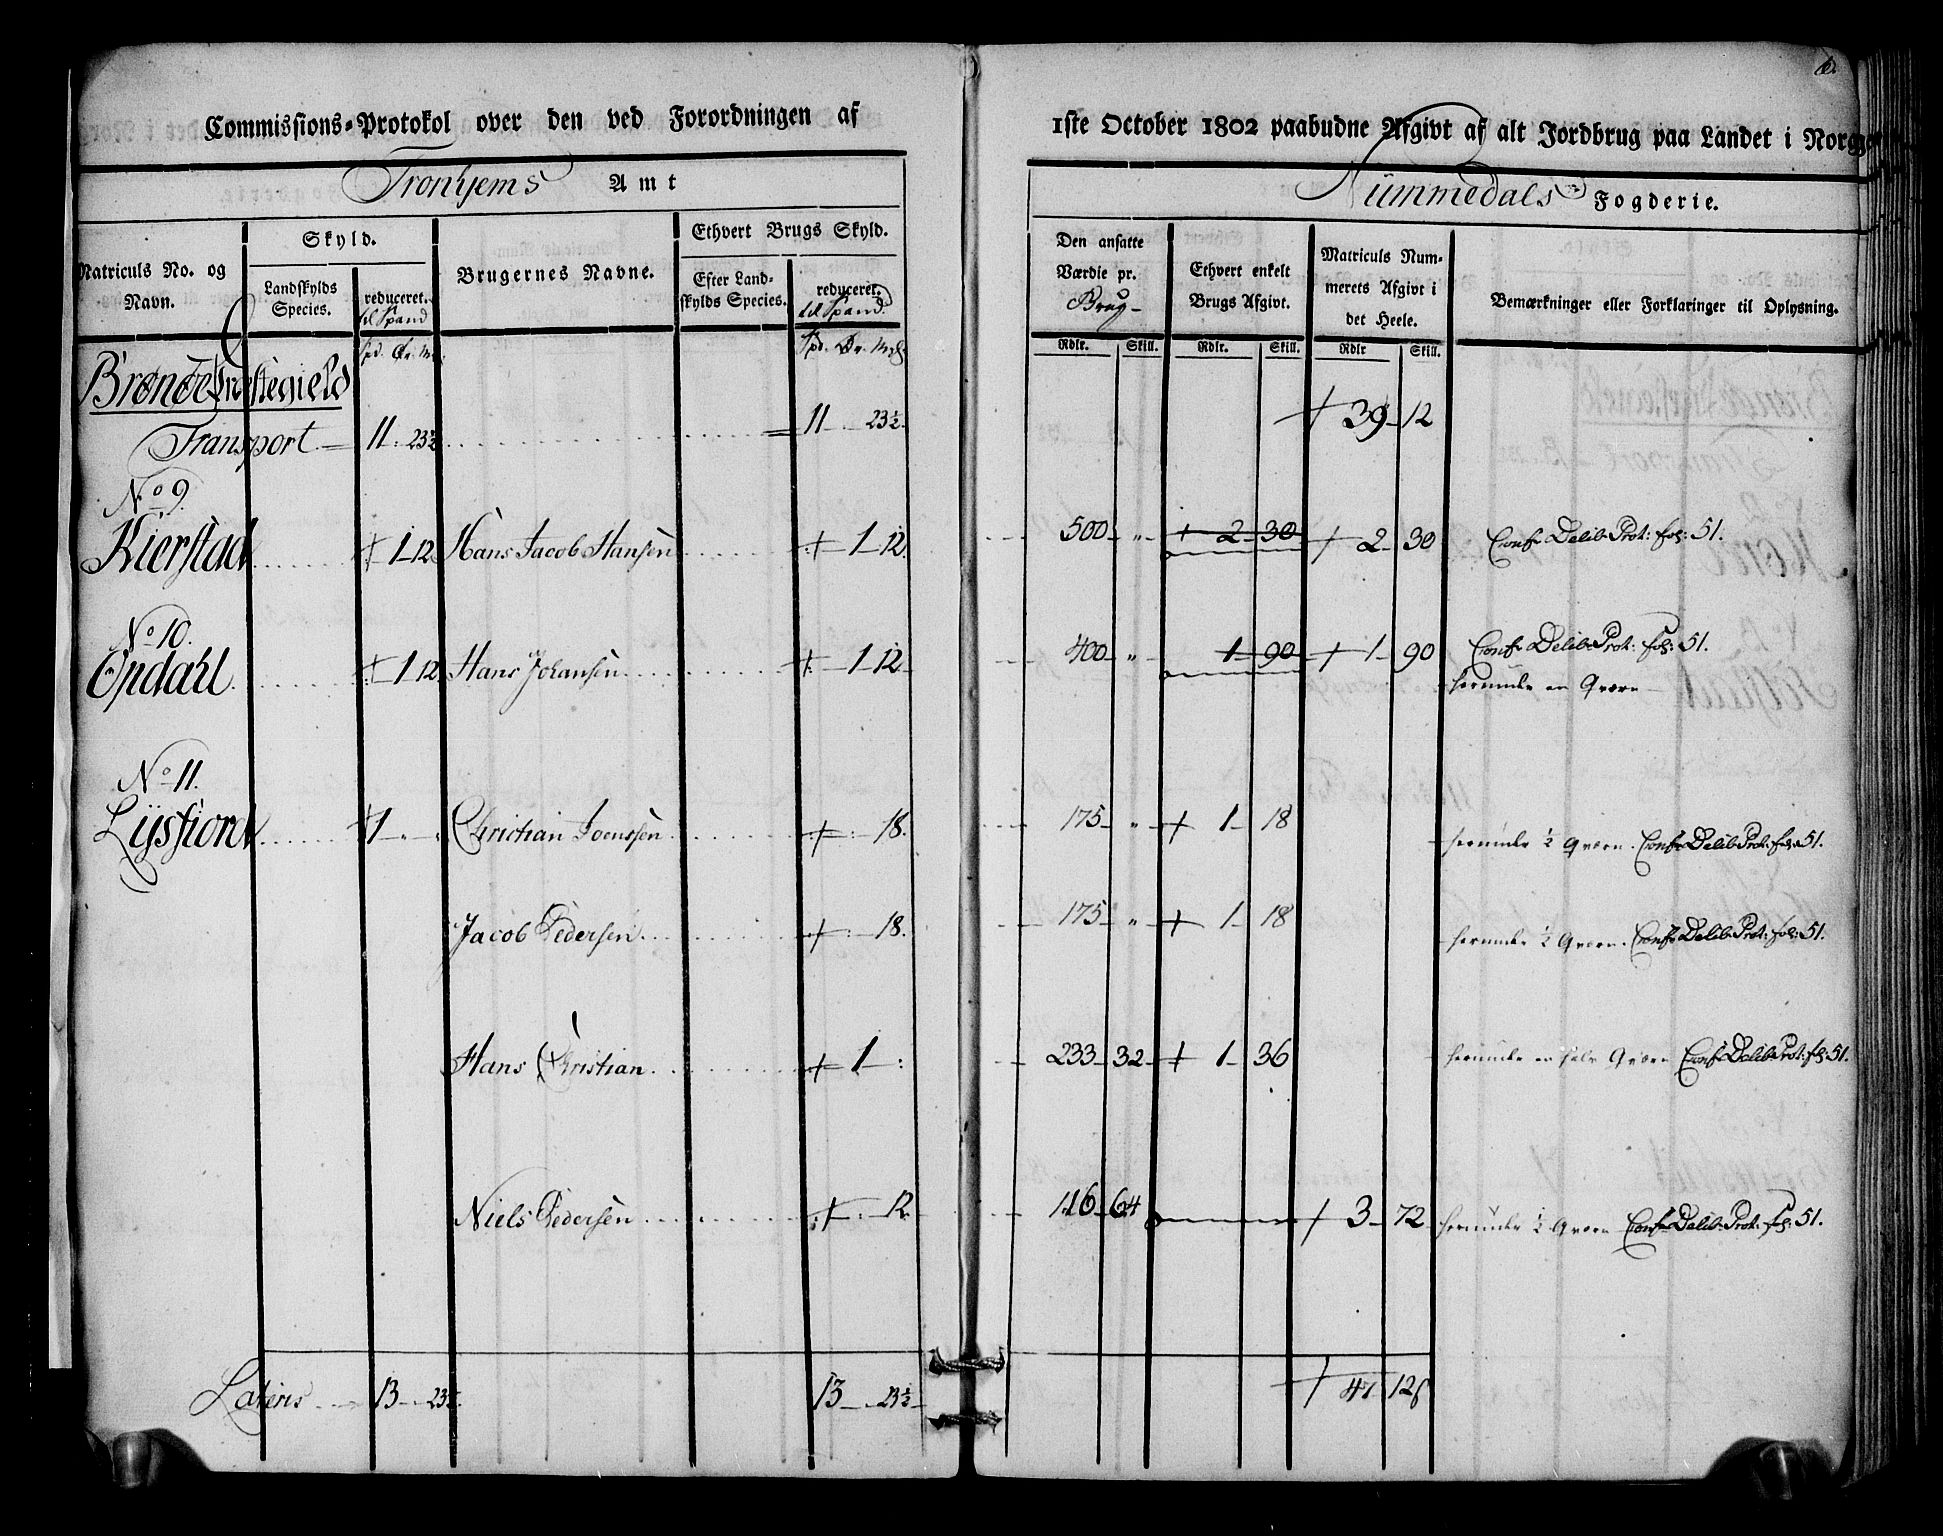 Commissions-Protokol over den ved Forordningen af
1ste October 1802 paabudne Afgivt af alt Jordbrug paa Landet i Norge
Tronhjems Amt
Nummedals Fogderie.
Matriculs No. og Navn.
Skyld.
Landskylds Species.
reduceret. til Spand
Brugernes Navne.
Ethvert Brugs Skyld.
Efter Landskylds Species.
reduceret. til Spand.
Den ansatte Værdie pr. Brug
Ethvert enkelt Brugs Afgivt.
Matriculs Nummerets Afgivt i det Heele.
Bemærkninger eller Forklaringer til Oplysning.
Spd. Ør. Mrk. Spd. Ør. Mrk. Rdlr. Skill. Rdlr. Skill. Rdlr Skill.
Brønøe Præstegield
Transport 11 . 23½ 11 . 23½ 39 12
No 9.
Kierstad 1 12 Hans Jacob Hansen 1 12. 500 " 2 30 2 30 Conf: Delib: Prot: fol: 51.
No 10.
Opdahl 1 12 Hans Johansen 1 12 400 " 1 90 1 90 Conf: Delib: Prot: fol: 51.
herunder en Qværn
No 11.
Lysfiord 1 Christian Joenssen 18. 175 " 1 18 herunder ½ Qværn. Conf: Delib: Prot: fol: 51.
Jacob Pedersen 18. 175 " 1 18 herunder ½ Qværn. Conf: Delib: Prot: fol: 51.
Hans Christian 1 233 32 1 36 herunder en halv Qværn Conf: Delib: Prot: fol: 51.
Niels Pedersen 12 116 64 3 72 herunder ½ Qværn Conf: Delib: Prot: fol: 51.
Lateris 13 . 23½ 13 . 23½ 47 12